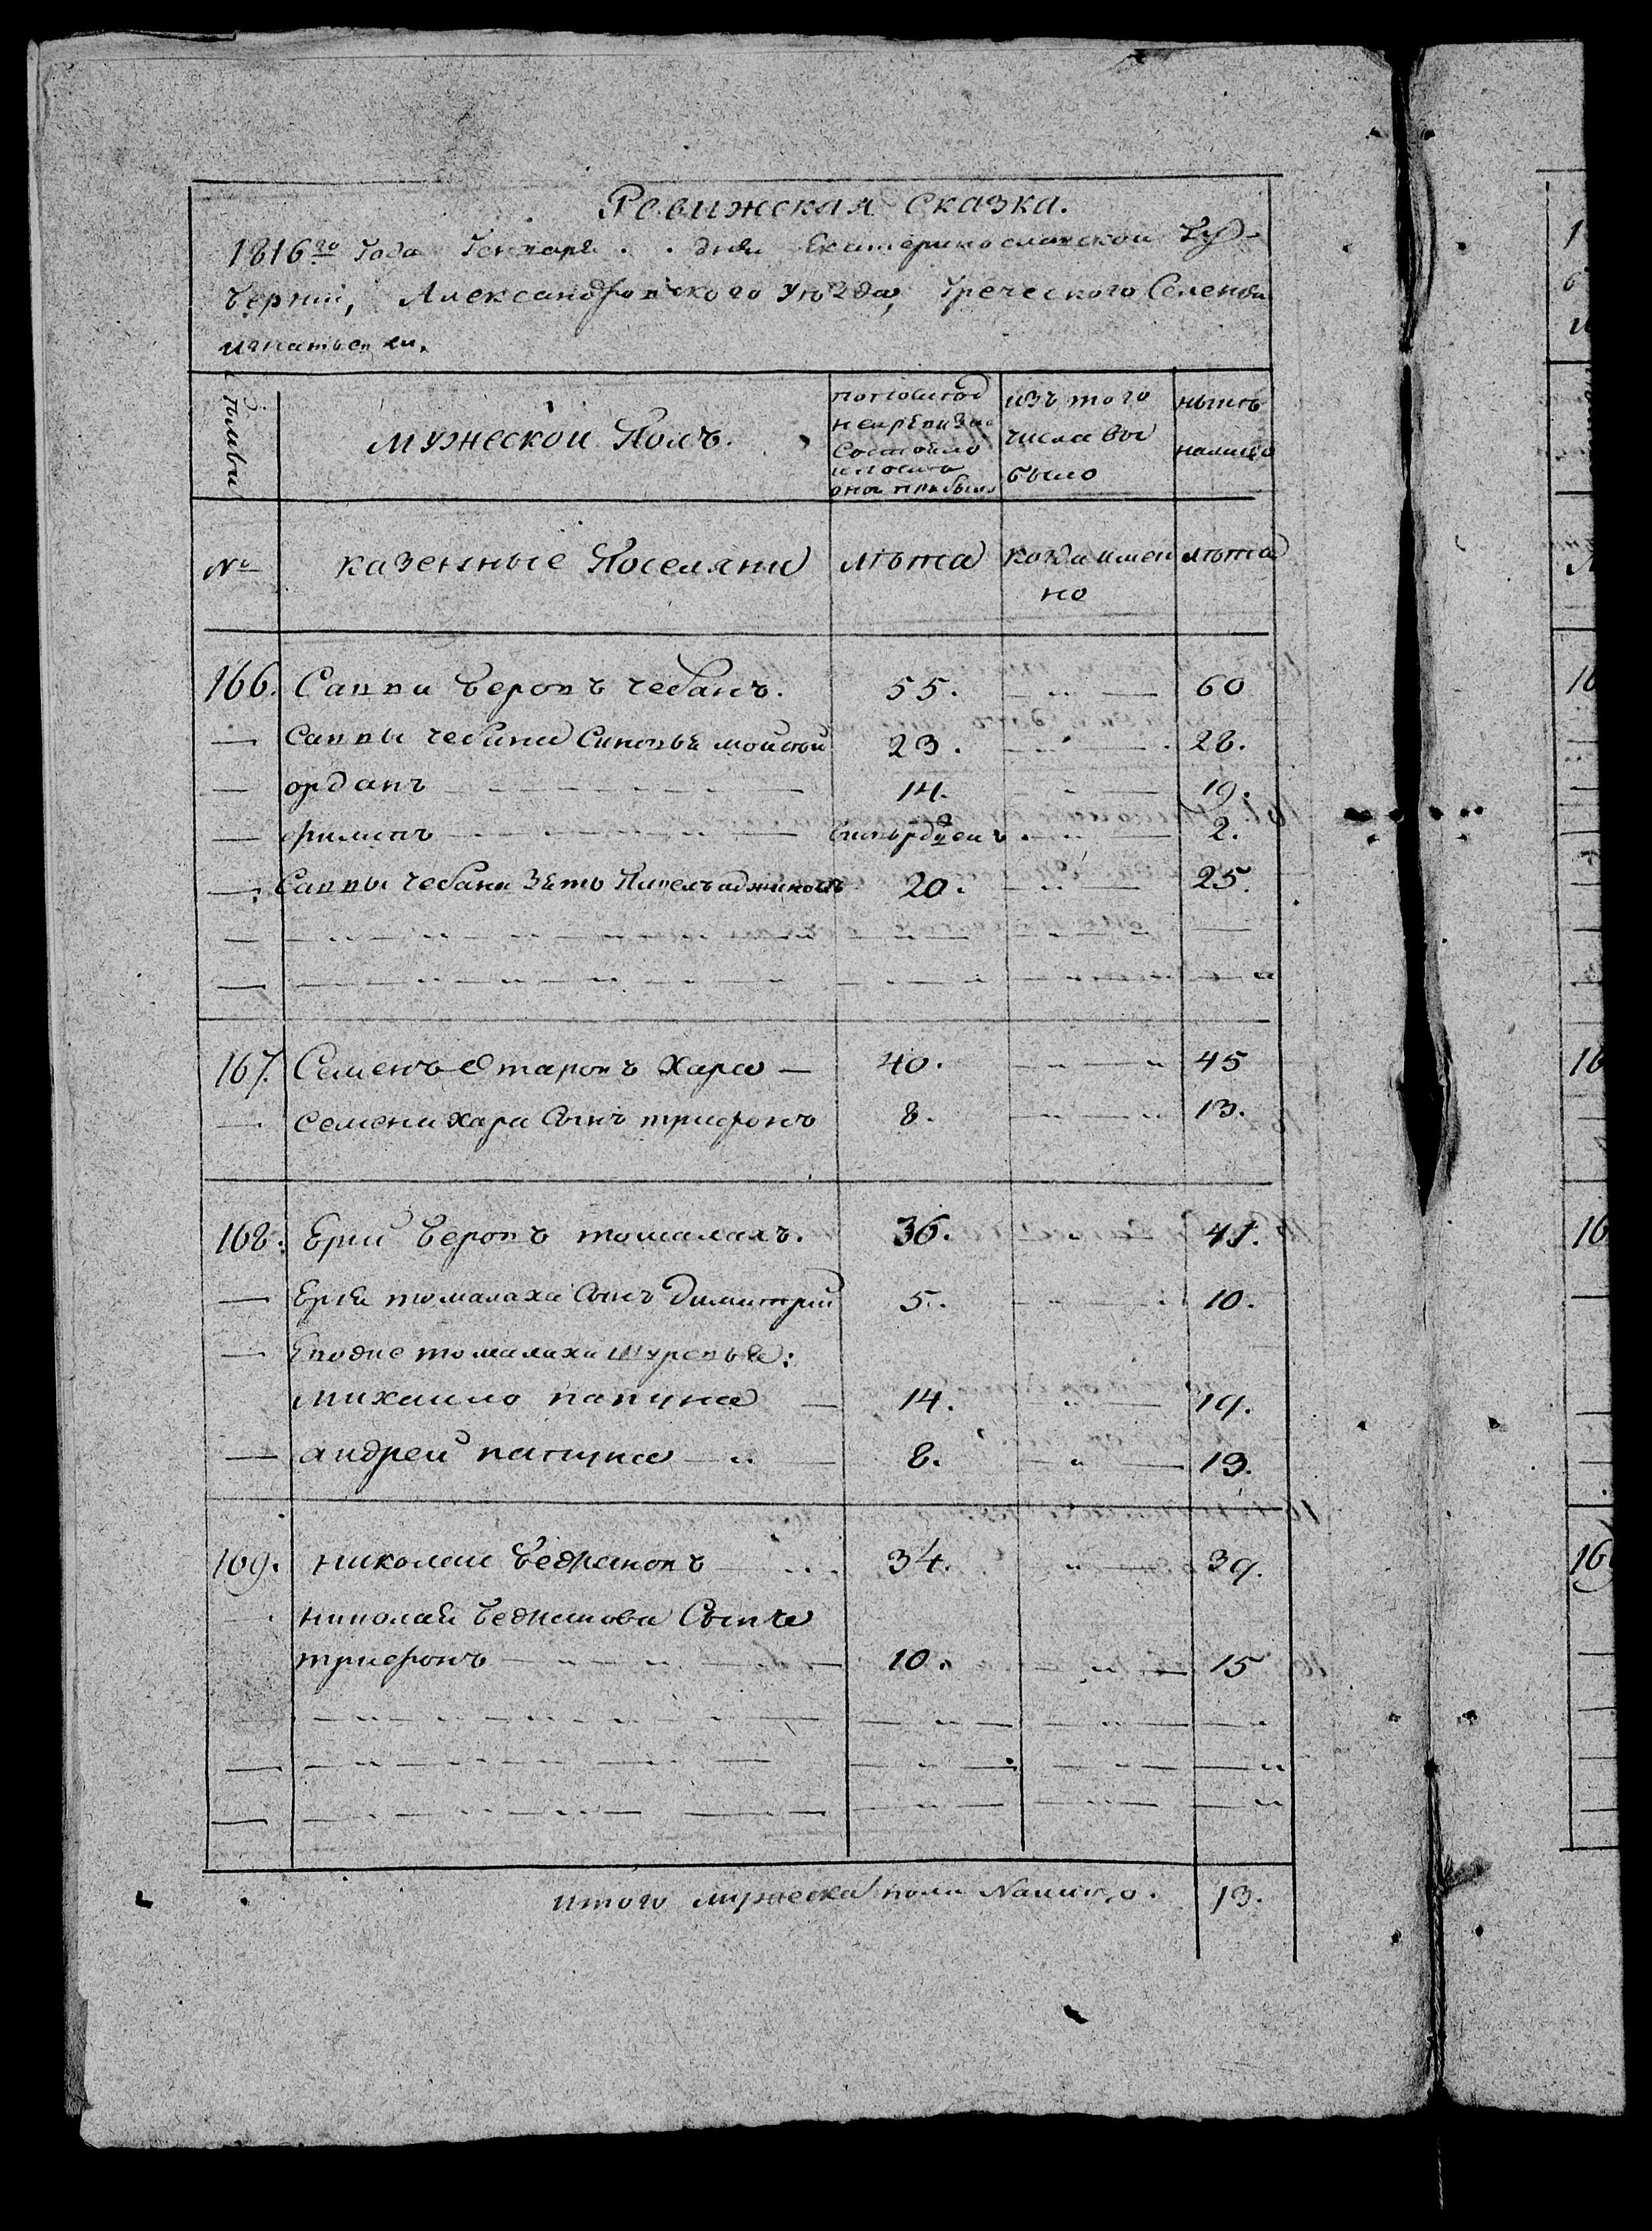 Ревижская сказка.
1816го Года Генваря . . дня Екатеринославской Гу-
берній, Александровского уѣзда, Греческого Селенія
игнатьевки.
Семьи
мужеской Полъ.
по последней ревизіи Состояло и после оной прибыло
изъ того числа выбыло
нынѣ налицо
№
казенные Поселяни
лѣта
когда именно
лѣта
166. Савва Феровъ чебанъ. 55. — „ — 60
— Саввы чебана Синовья мойсей 23. — „ — 28.
— орданъ — 14. — „ — 19.
— филипъ — . — „ — 2.
— Саввы чебана Зять Павелъ 20. — „ — 25.
167. Семенъ Ѳтаровъ Хара — 40. — „ — 45
— Семена Хара Сынъ трифонъ 8. — „ — 13.
168. Ерий Феровъ томалахъ. 36. — „ — 41.
— Ерія томалаха Сынъ Димитрий 5. — „ — 10.
— томалаха шуревья:
михаило папуна — 14. — „ — 19.
— андрей папуна — „ — 8. — „ — 13.
169. николаи беджановъ — 34. „ — 39.
— николай беджанова Сынъ
трифонъ — „ — 10. — „ — 15
итого мужеска пола Налицо. 13.